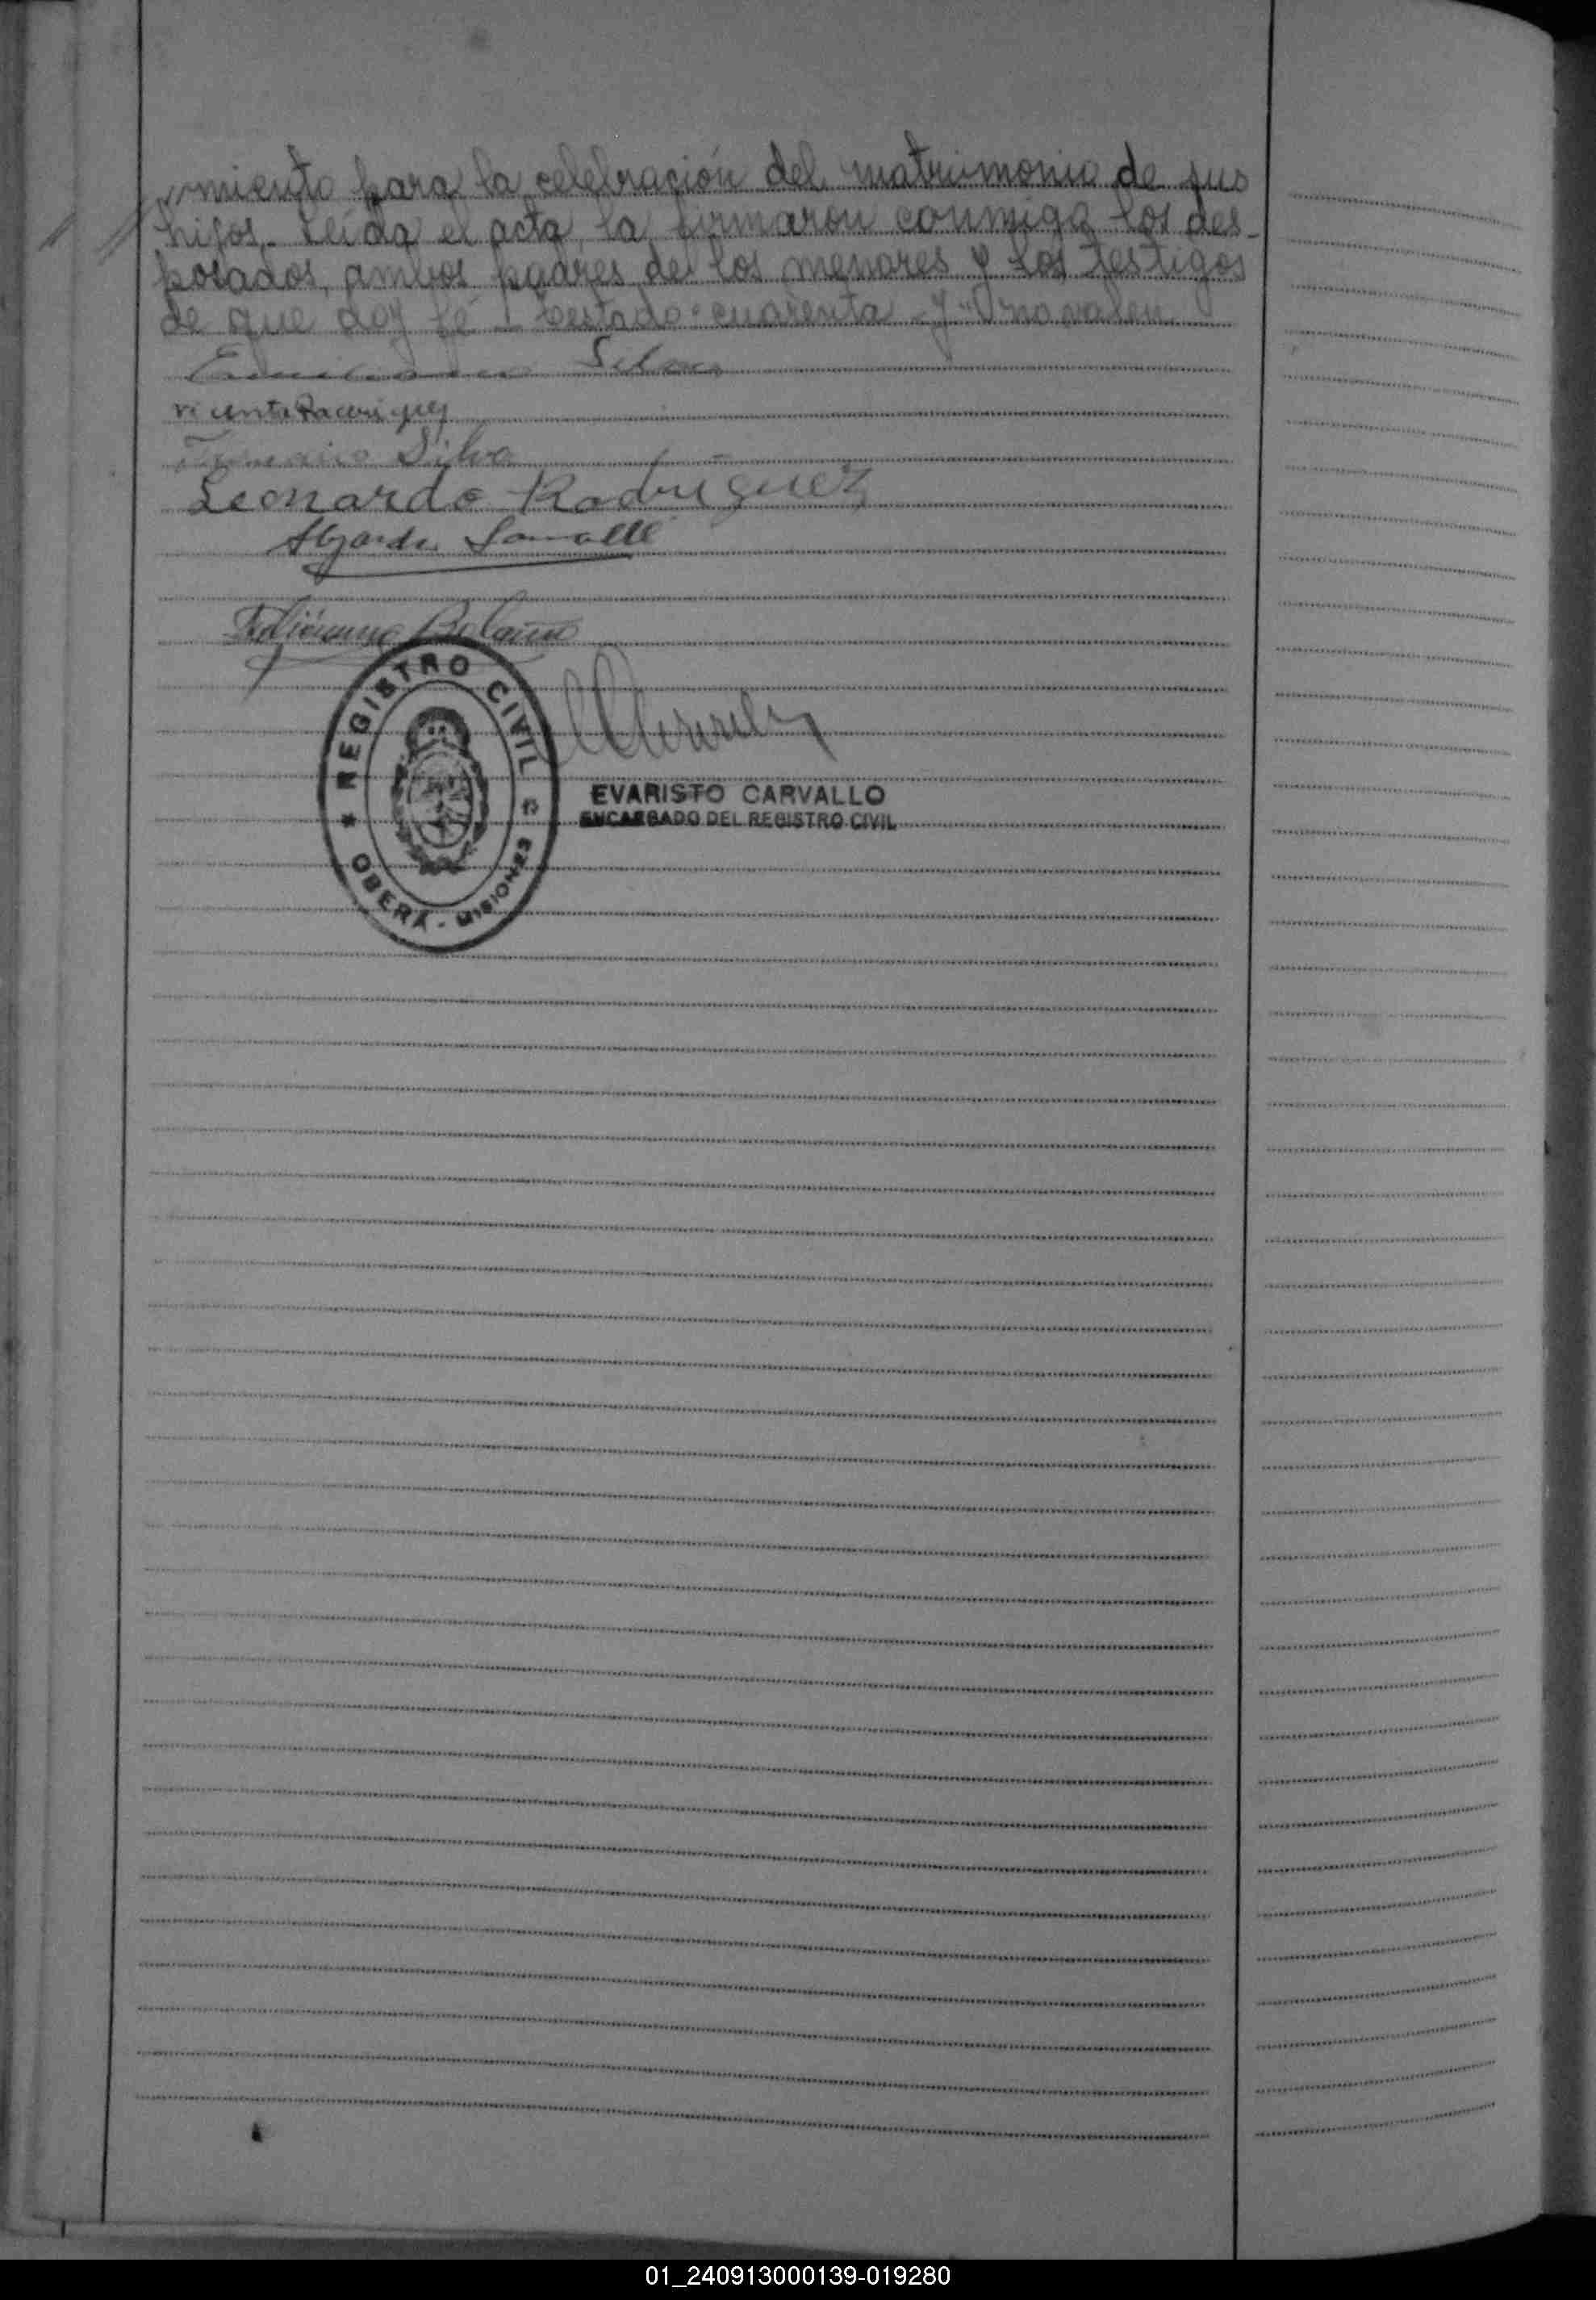 miento para la celebración del matrimonio de sus
hijos.- Leída el acta, la firmaron conmigo los des-
posados, ambos padres de los menores y los testigos
de que doy fé - Testado: cuarenta - y - Uno valen
Silva
Vicenta Rodriguez
Silva
Leonardo Rodriguez
Feliciano Bolaño
REGISTRO CIVIL
OBERÁ - MISIONES
EVARISTO CARVALLO
ENCARGADO DEL REGISTRO CIVIL
01_240913000139-019280